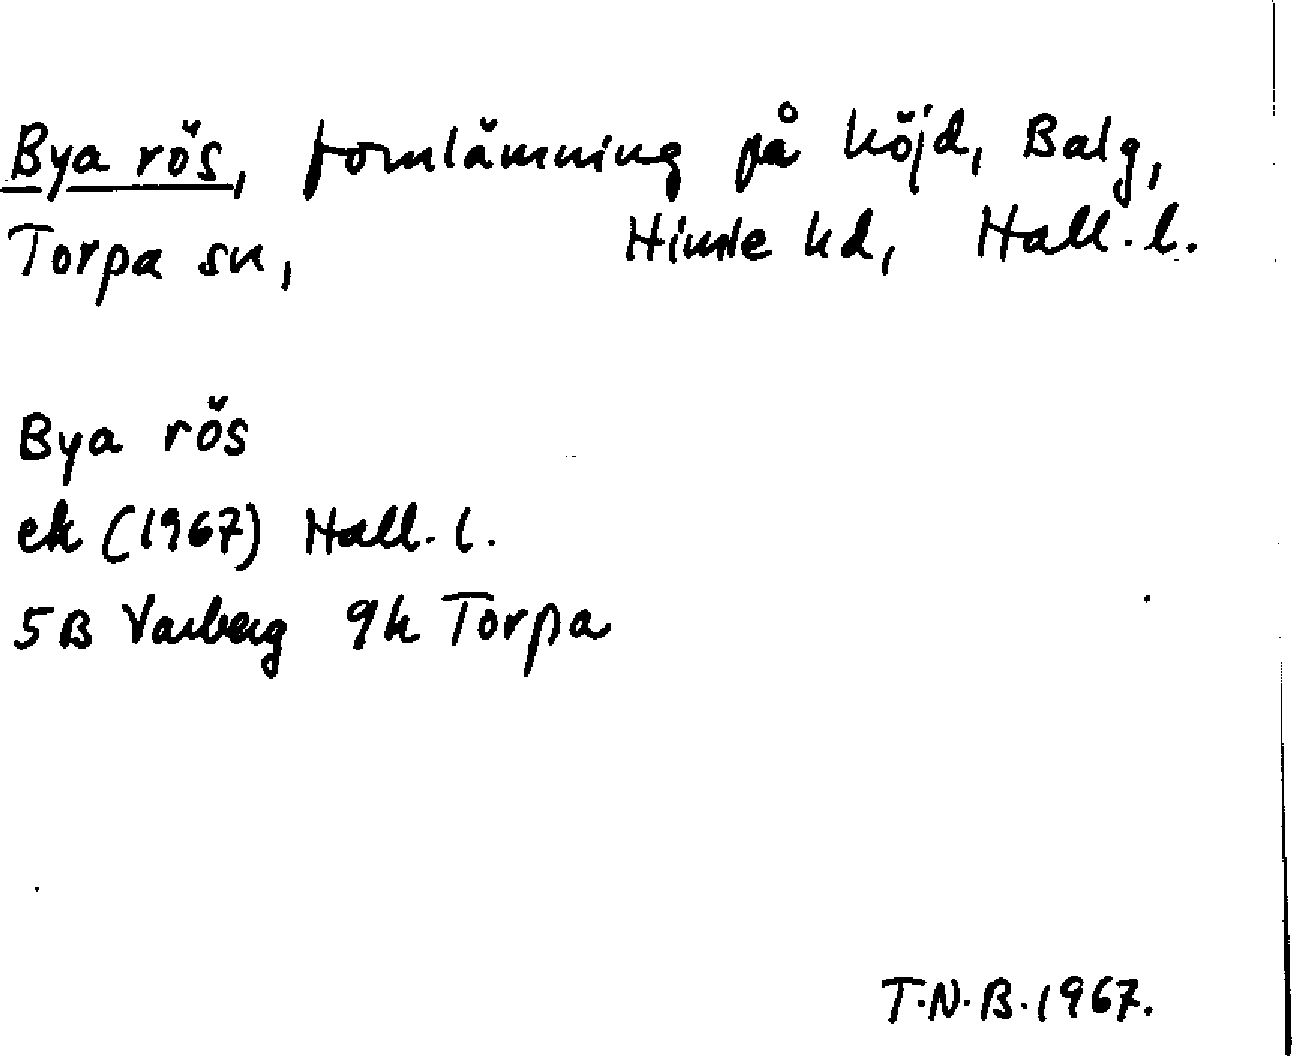 Bya rös, fornlämning på höjd, Balg,
Torpa sn, Himle hd, Hall. l.
Bya rös
ek (1967) Hall. l.
5B Varberg 9h Torpa
T.N.B. 1967.